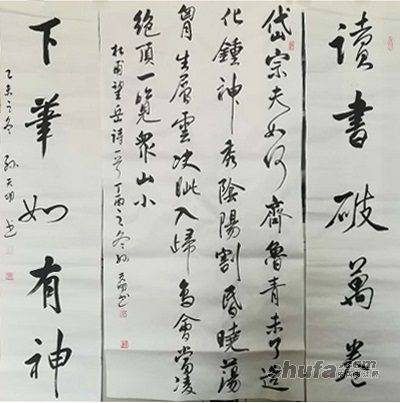 讀書破萬卷
岱宗夫如何齊魯青未了造
化鍾神秀陰陽割昏曉蕩
胷生層雲决眦入歸鳥會當凌
絶頂一覽衆山小
杜甫望岳詩一首丁酉之冬孙天书
下筆如有神
乙未之冬孙天书
shufa.com